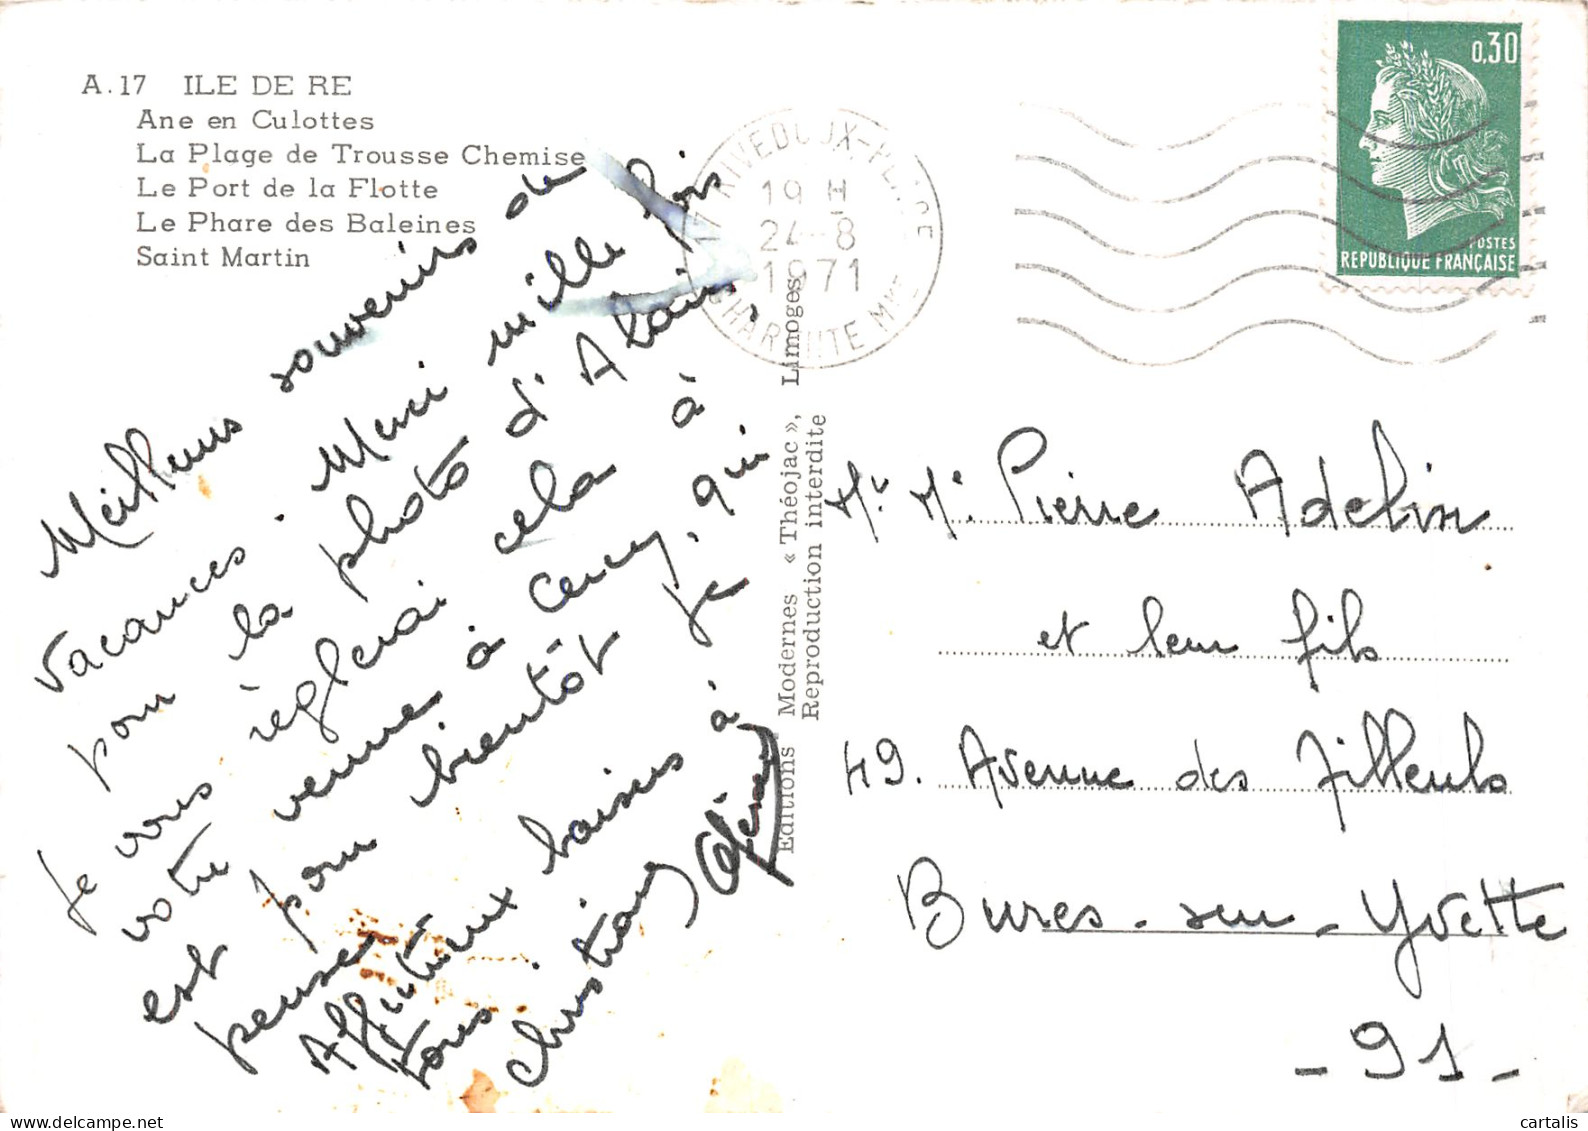 A.17 ILE DE RE
Ane en Culottes
La Plage de Trousse Chemise
Le Port de la Flotte
Le Phare des Baleines
Saint Martin
Meilleurs souvenirs de
vacances. Merci mille fois
pour la photo d'Alain,
je vous règlerai cela à
votre venue à Cercy, qui
est pour bientôt je
pense.
Affectueux baisers à
vous.
Christiane
Editions Modernes « Théojac », Limoges
Reproduction interdite
17 RIVEDOUX-PLAGE
19 H
24-8
1971
CHARENTE MME
0,30
POSTES
REPUBLIQUE FRANÇAISE
Mr Me Pierre Adelin
et leur fils
49. Avenue des Tilleuls
Bures-sur-Yvette
- 91 -
cartalis
delcampe.net